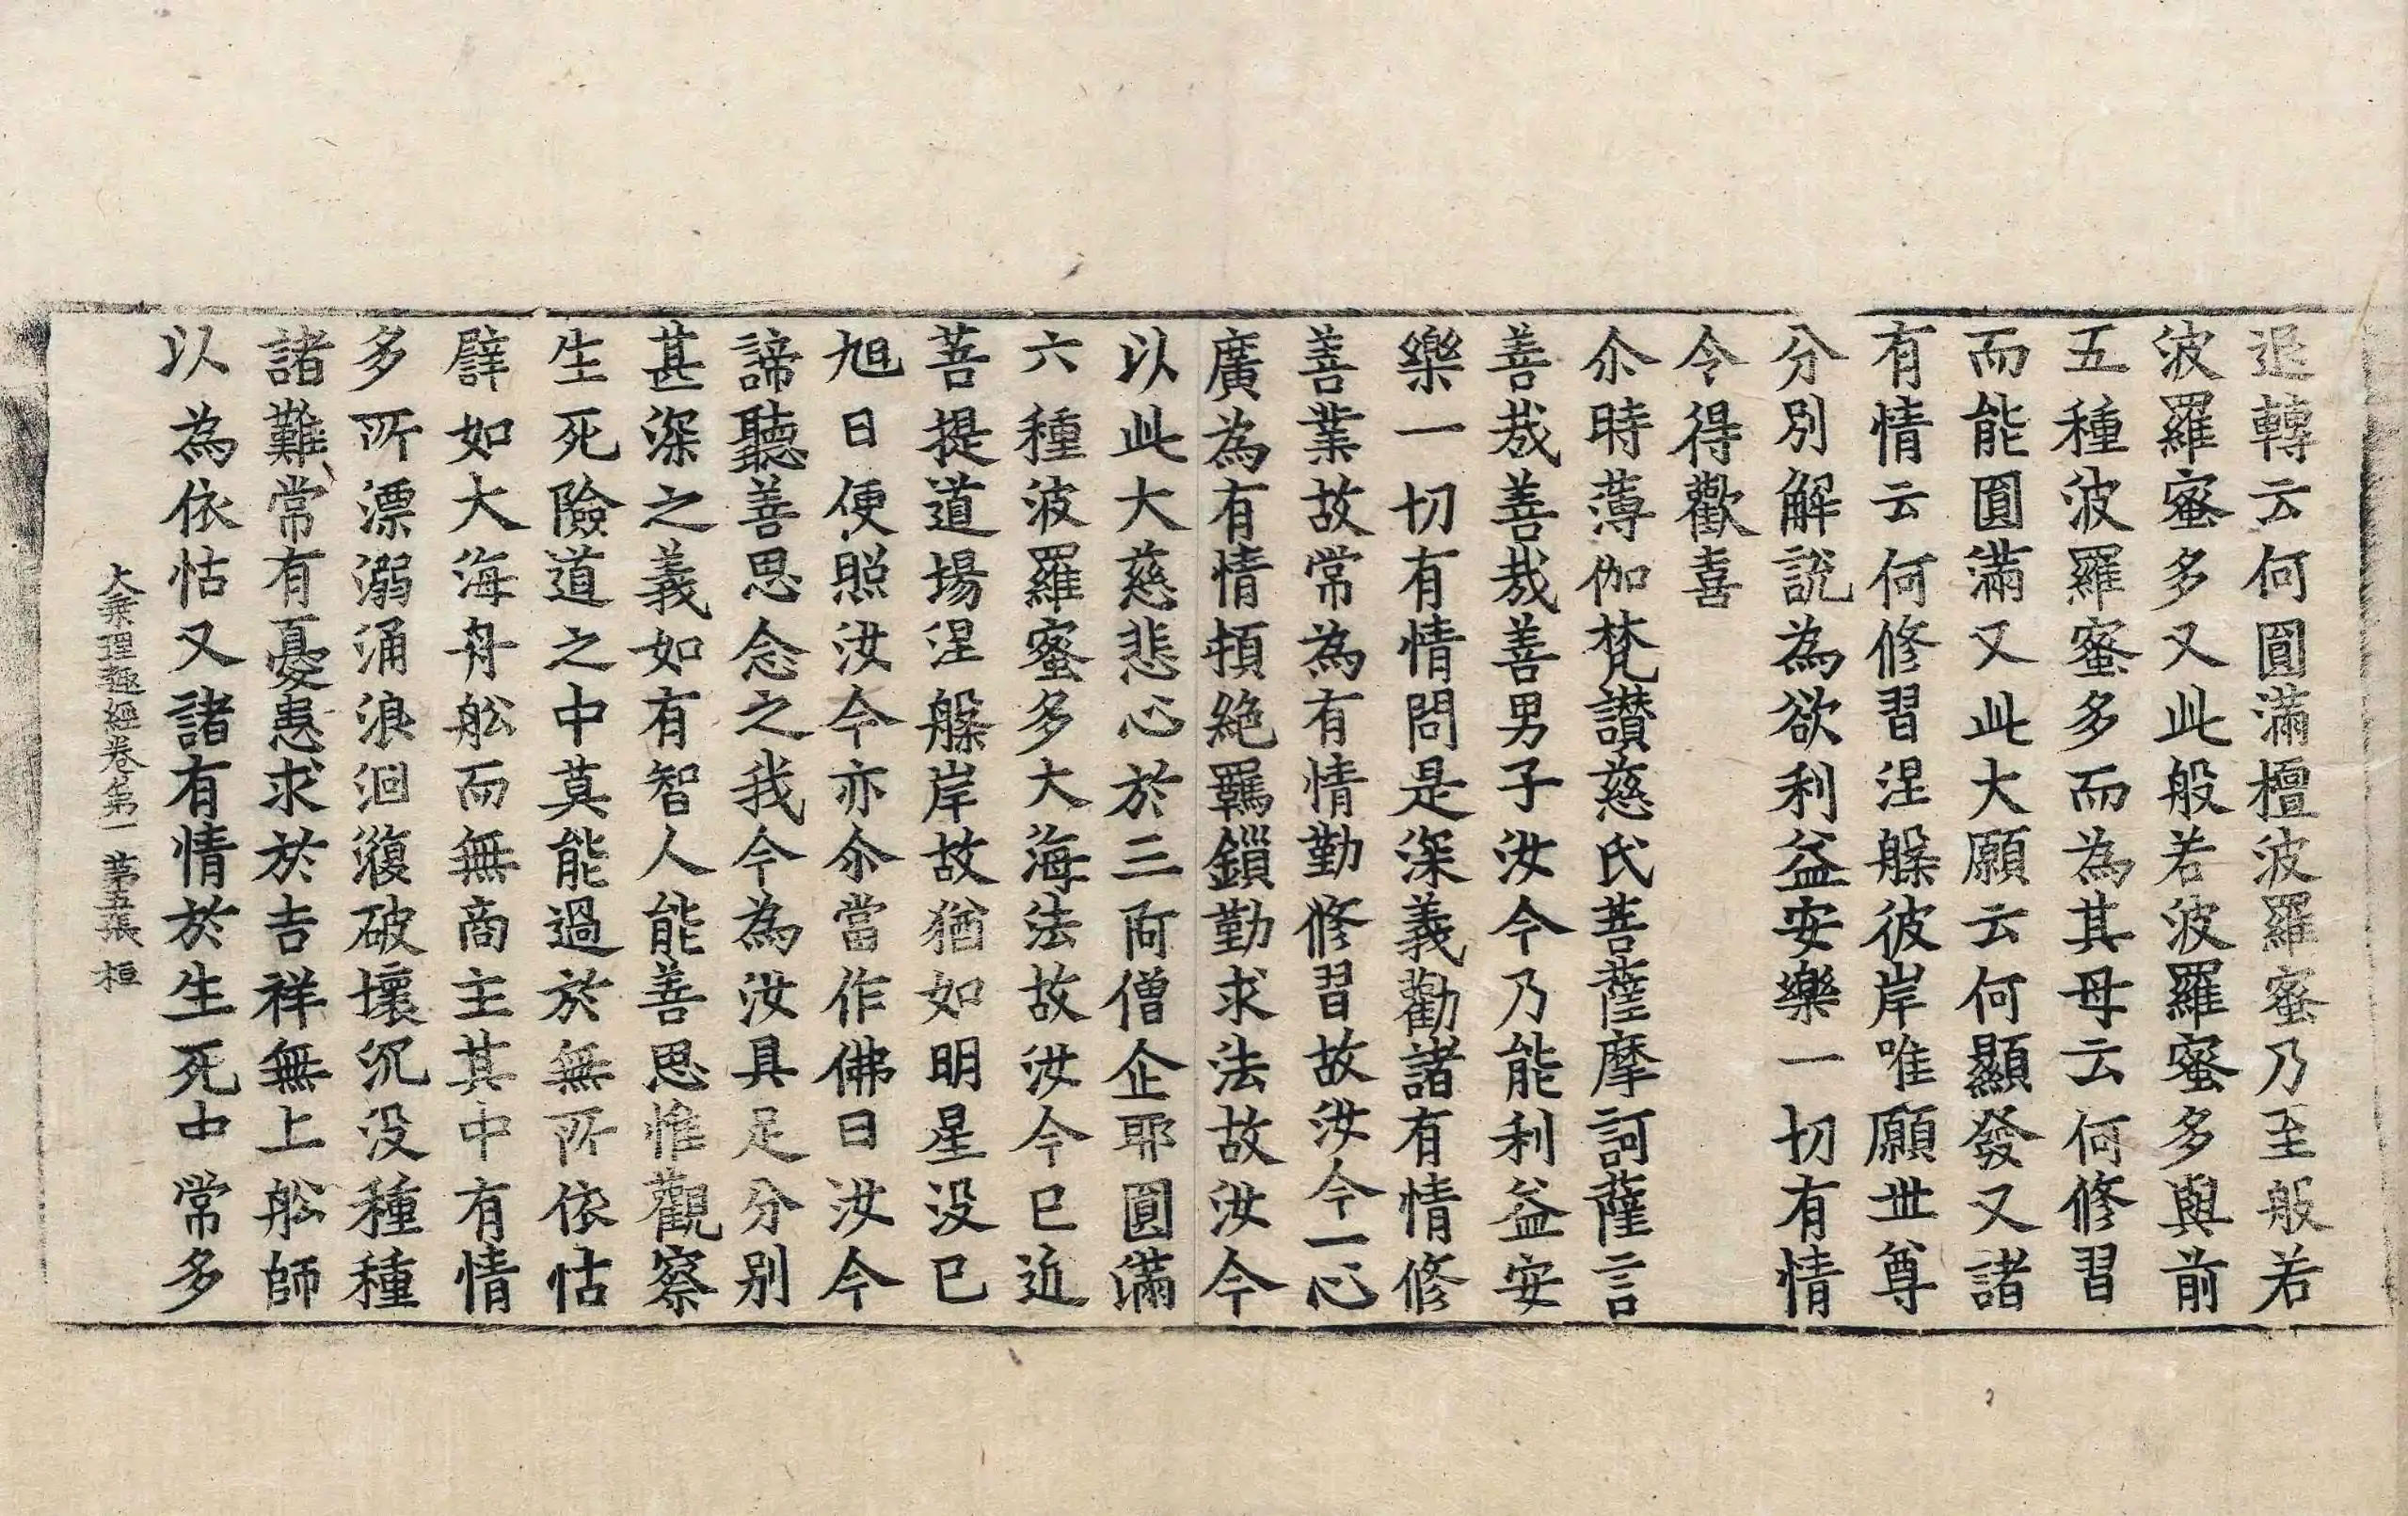 退轉云何圓滿檀波羅蜜乃至般若
波羅蜜多又此般若波羅蜜多與前
五種波羅蜜多而為其母云何修習
而能圓滿又此大願云何顯發又諸
有情云何修習涅槃彼岸唯願世尊
分別解說為欲利益安樂一切有情
令得歡喜
尒時薄伽梵讃慈氏菩薩摩訶薩言
善㢤善㢤善男子汝今乃能利益安
樂一切有情問是深義勸諸有情修
善業故常為有情勤修習故汝今一心
廣為有情頓絕羈鏁勤求法故汝今
以此大慈悲心於三阿僧企耶圓滿
六種波羅蜜多大海法故汝今已近
菩提道場涅槃岸故猶如明星没已
旭日便照汝今亦尒當作佛日汝今
諦聽善思念之我今為汝具足分别
甚深之義如有智人能善思惟觀察
生死險道之中莫能過於無所依怙
譬如大海舟舩而無商主其中有情
多所漂溺涌浪洄澓破壞沉没種種
諸難常有憂患求於吉祥無上舩師
以為依怙又諸有情於生死中常多
大乘理趣經卷第一 第五張 桓